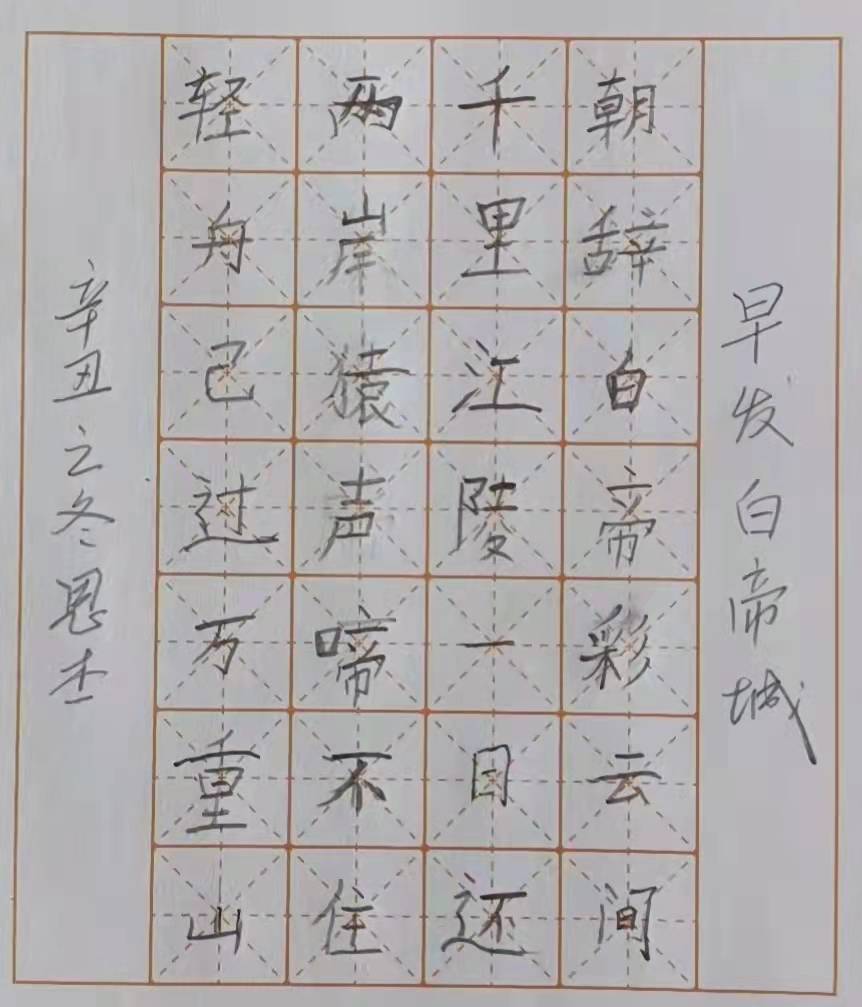 早发白帝城
朝辞白帝彩云间
千里江陵一日还
两岸猿声啼不住
轻舟己过万重山
辛丑之冬恩杰